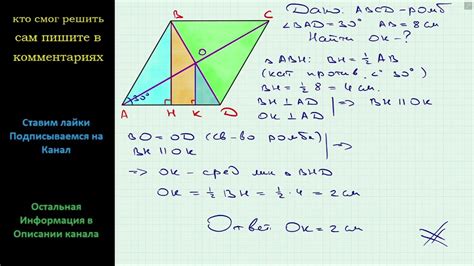 кто смог решить
сам пишите в
комментариях
Ставим лайки
Подписываемся на
Канал
Остальная
Информация в
Описании канала
B
C
O
30°
A
H
K
D
Дано: ABCD-ромб
∠BAD=30° AB=8см
Найти OK-?
△ABH: BH=½AB
(кат против ∠30°)
BH=½·8=4см.
BH⊥AD
OK⊥AD
|⇒ BH||OK
BO=OD (св-во ромба)
BH||OK
|⇒
⇒ OK-сред лин △BHD
OK=½BH=½·4=2см
Ответ OK=2см